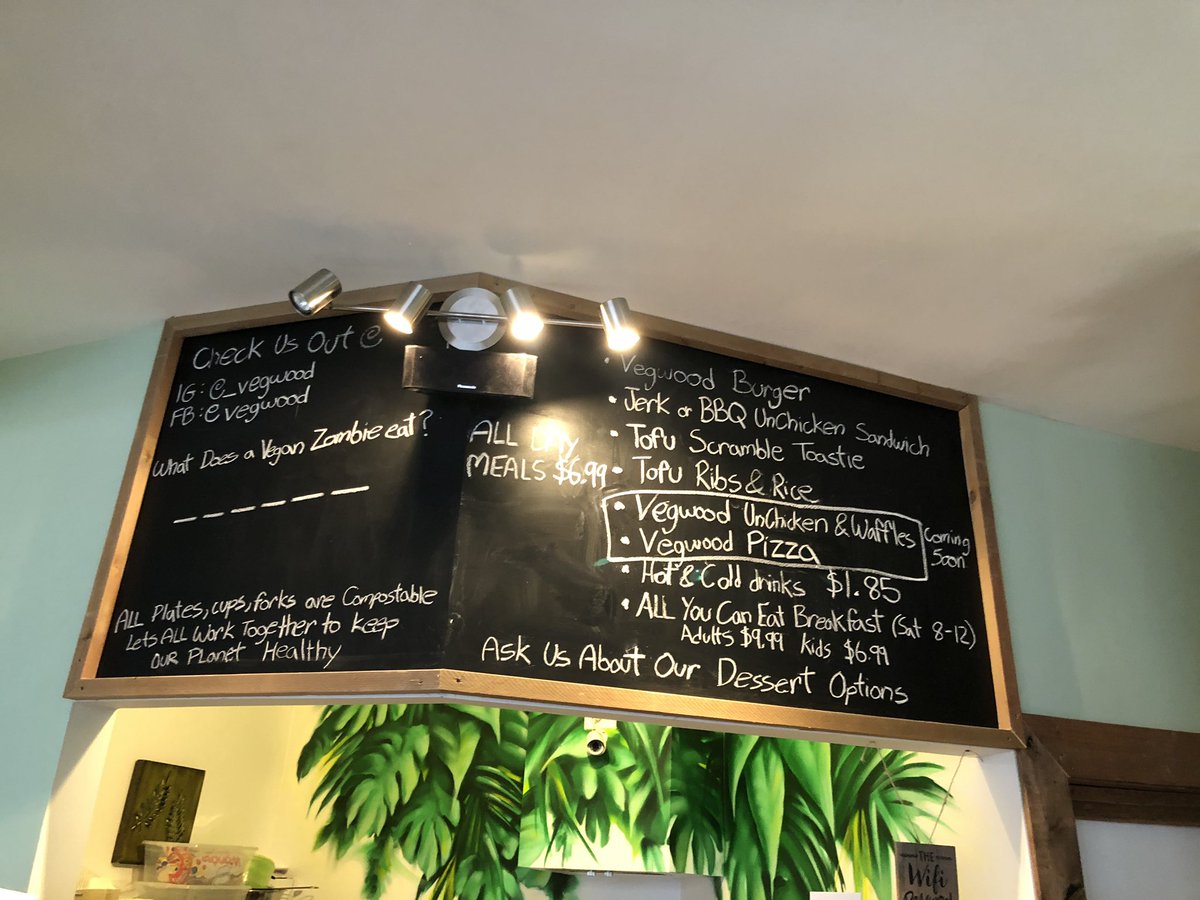 Check Us Out @
IG: @_vegwood
FB: @vegwood
What Does a Vegan Zombie eat?
ALL Plates, cups, forks are Compostable
Lets ALL Work Together to keep
OUR PLanet Healthy
Panasonic
ALL Day
MEALS $6.99
• Vegwood Burger
• Jerk or BBQ UnChicken Sandwich
• Tofu Scramble Toastie
• Tofu Ribs & Rice
• Vegwood UnChicken & Waffles
• Vegwood Pizza
Coming
Soon
• Hot & Cold drinks $1.85
• ALL You Can Eat Breakfast (Sat 8-12)
Adults $9.99 Kids $6.99
Ask Us About Our Dessert Options
THE
Wifi